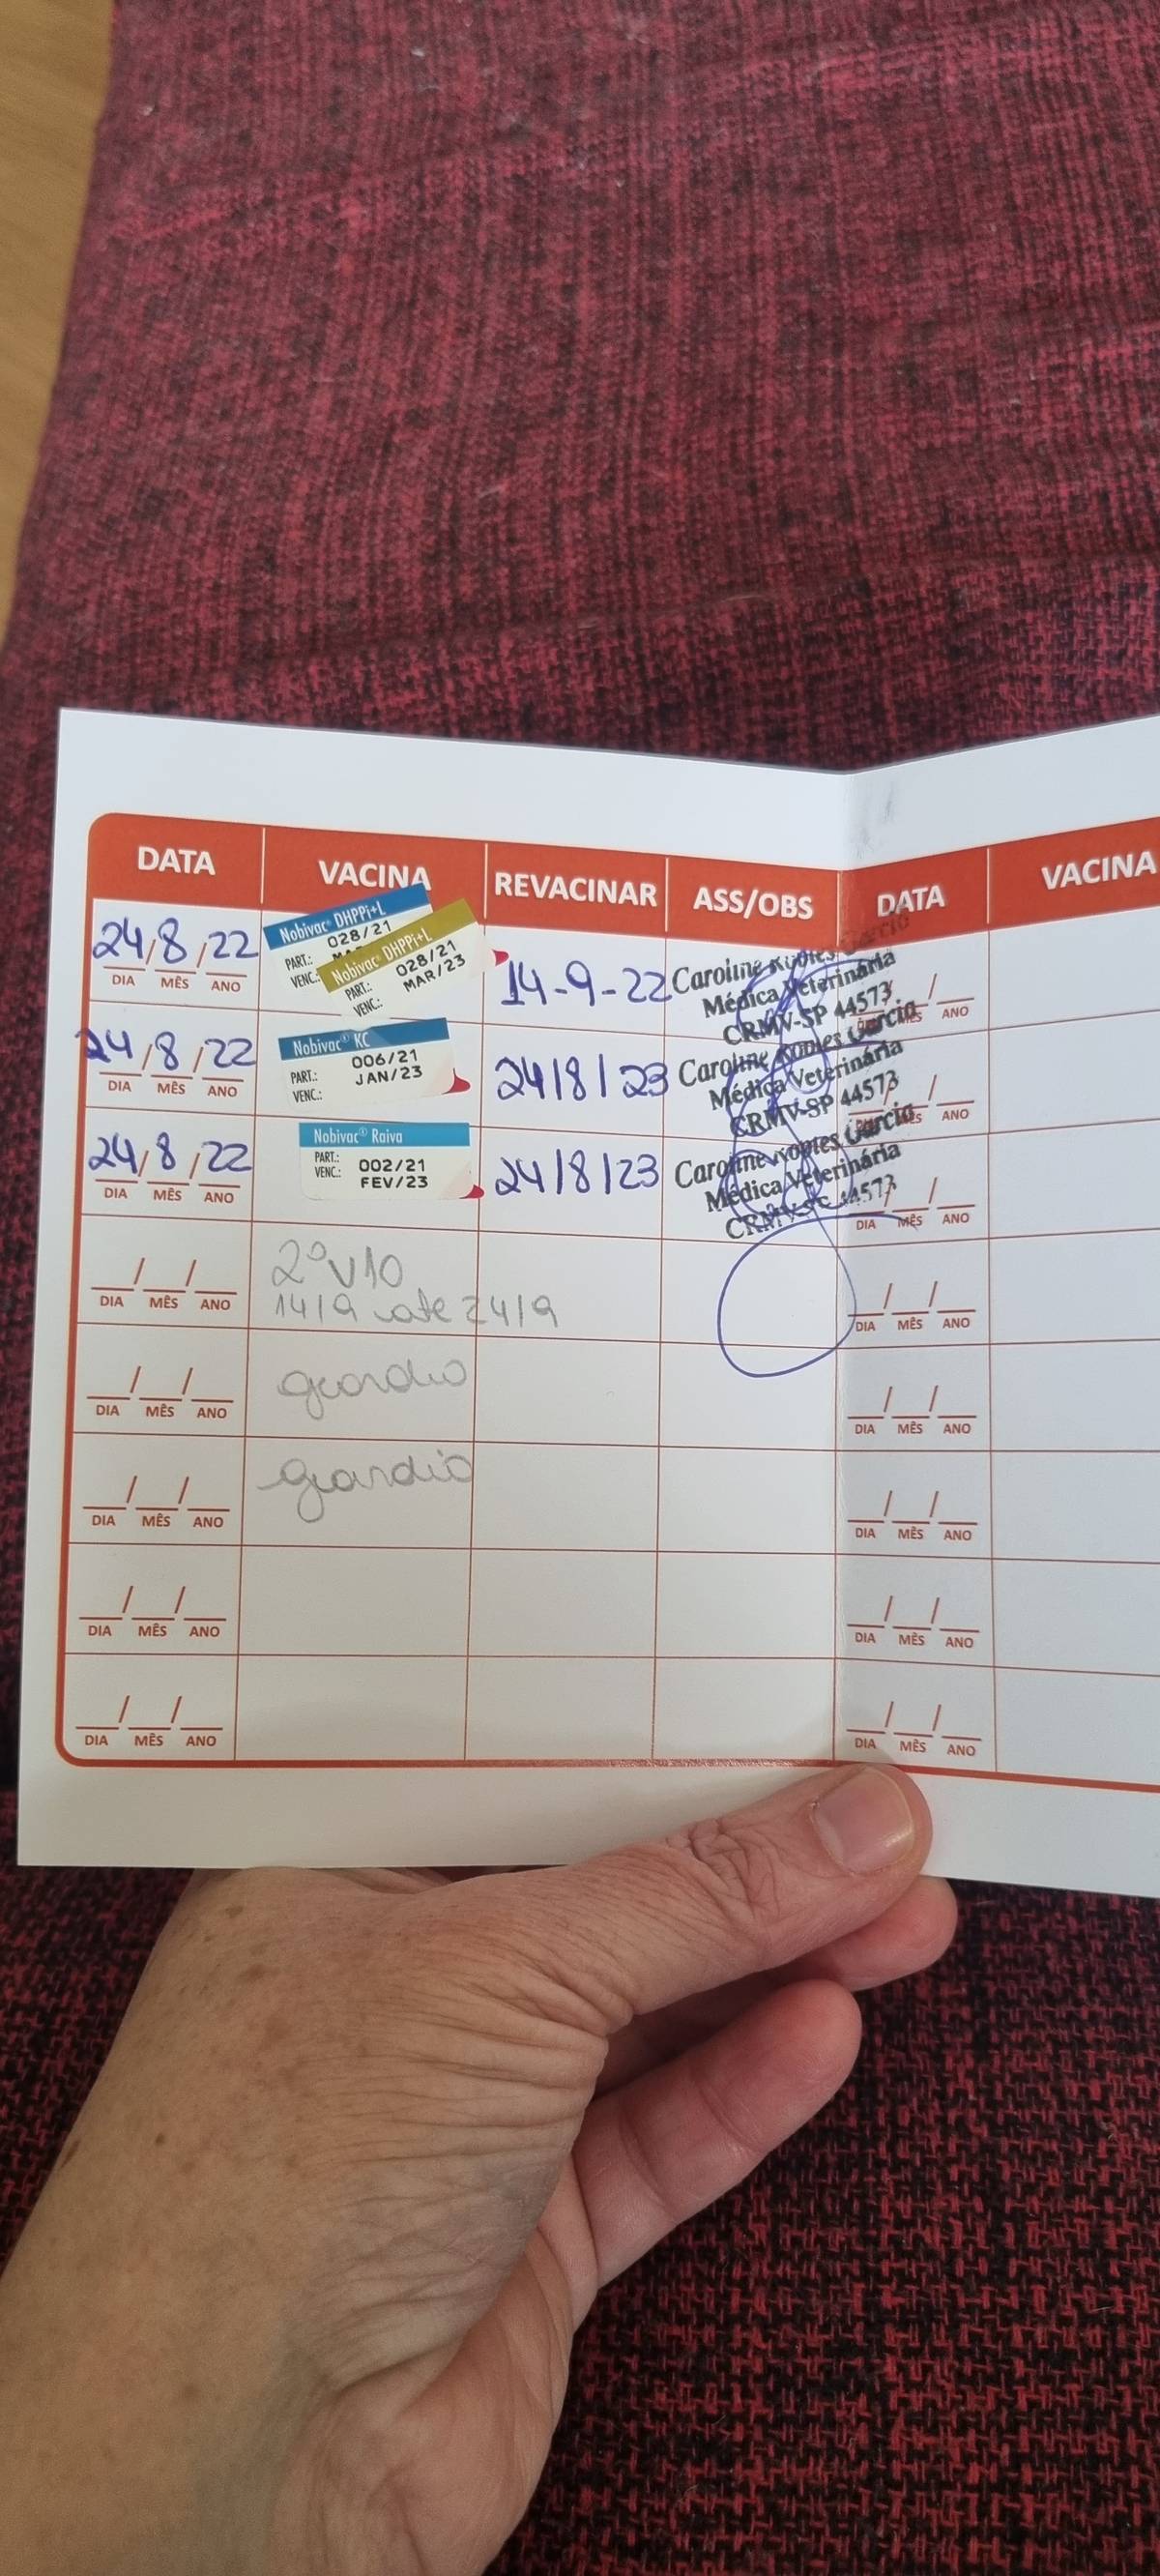 DATA VACINA REVACINAR ASS/OBS DATA VACINA
24/8/22
DIA MÊS ANO
Nobivac® DHPPi+L
PART.: 028/21
VENC.:
Nobivac® DHPPi+L
PART.: 028/21
VENC.: MAR/23
14-9-22
Caroline
Médica Veterinária
CRMV-SP 44573
DIA MÊS ANO
24/8/22
DIA MÊS ANO
Nobivac® KC
PART.: 006/21
VENC.: JAN/23
24/8/23
Caroline Garcia
Médica Veterinária
CRMV-SP 44573
DIA MÊS ANO
24/8/22
DIA MÊS ANO
Nobivac® Raiva
PART.: 002/21
VENC.: FEV/23
24/8/23
Caroline Garcia
Médica Veterinária
CRMV-SP 44573
DIA MÊS ANO
2º V10
14/9 até 24/9
DIA MÊS ANO
DIA MÊS ANO
giardia
DIA MÊS ANO
DIA MÊS ANO
giardia
DIA MÊS ANO
DIA MÊS ANO
DIA MÊS ANO
DIA MÊS ANO
DIA MÊS ANO
DIA MÊS ANO